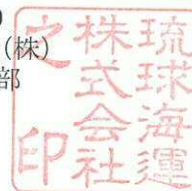 (株)
部
琉球海運
株式会社
之印